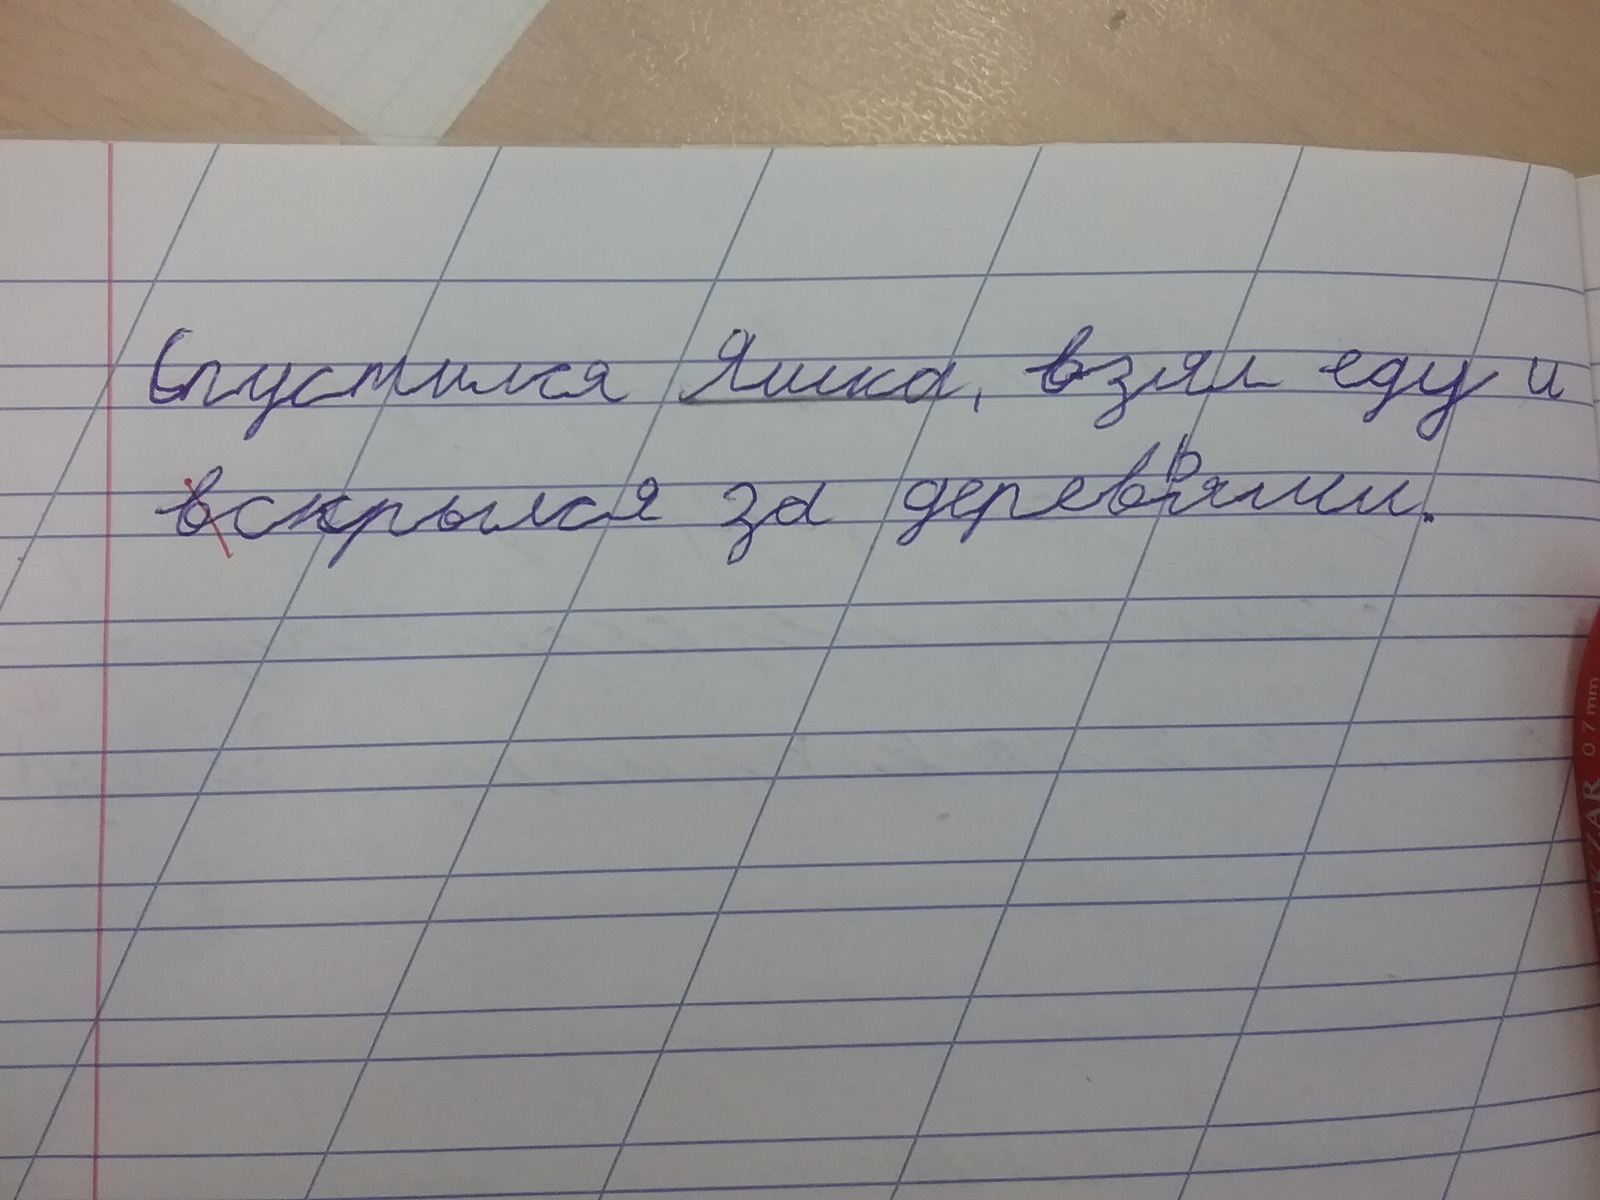 Спустился Яшка, взял еду и
вскрылся за деревьями.
0.7 mm